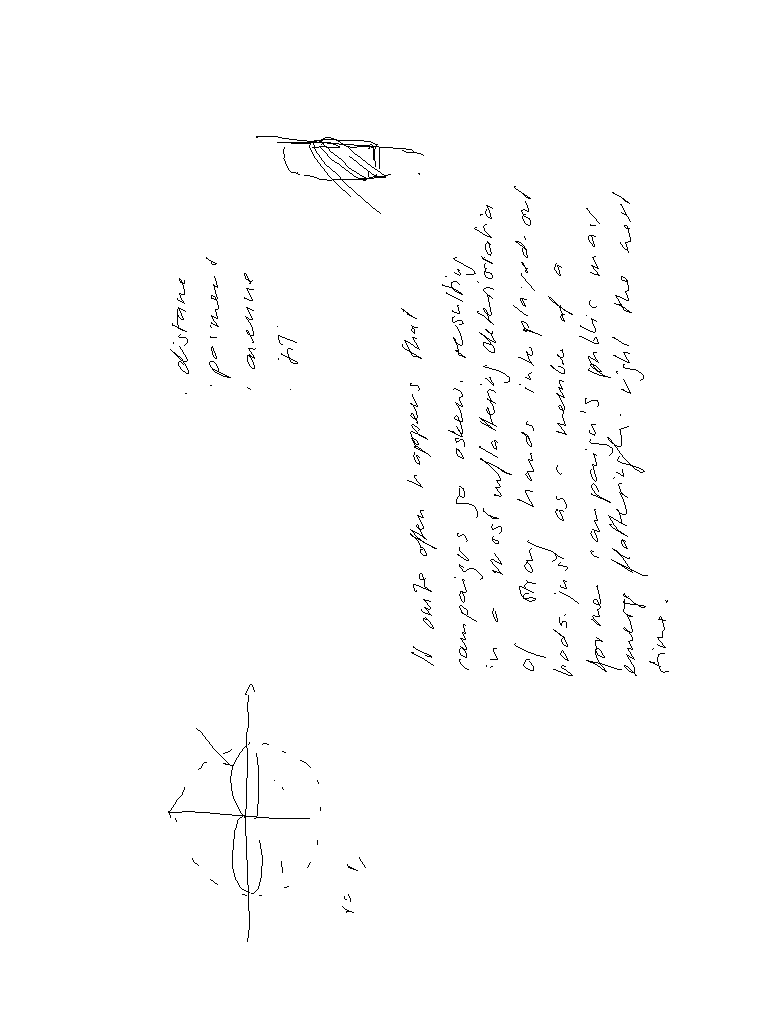 distane
paiment
avenue
It quite often happens that
campaigns go askew, resulting
in a most unflattering deterioration
of strong hands into played-out
hods, just as a member of a
former campaign's public may
emerge flatteringly right the next
time.